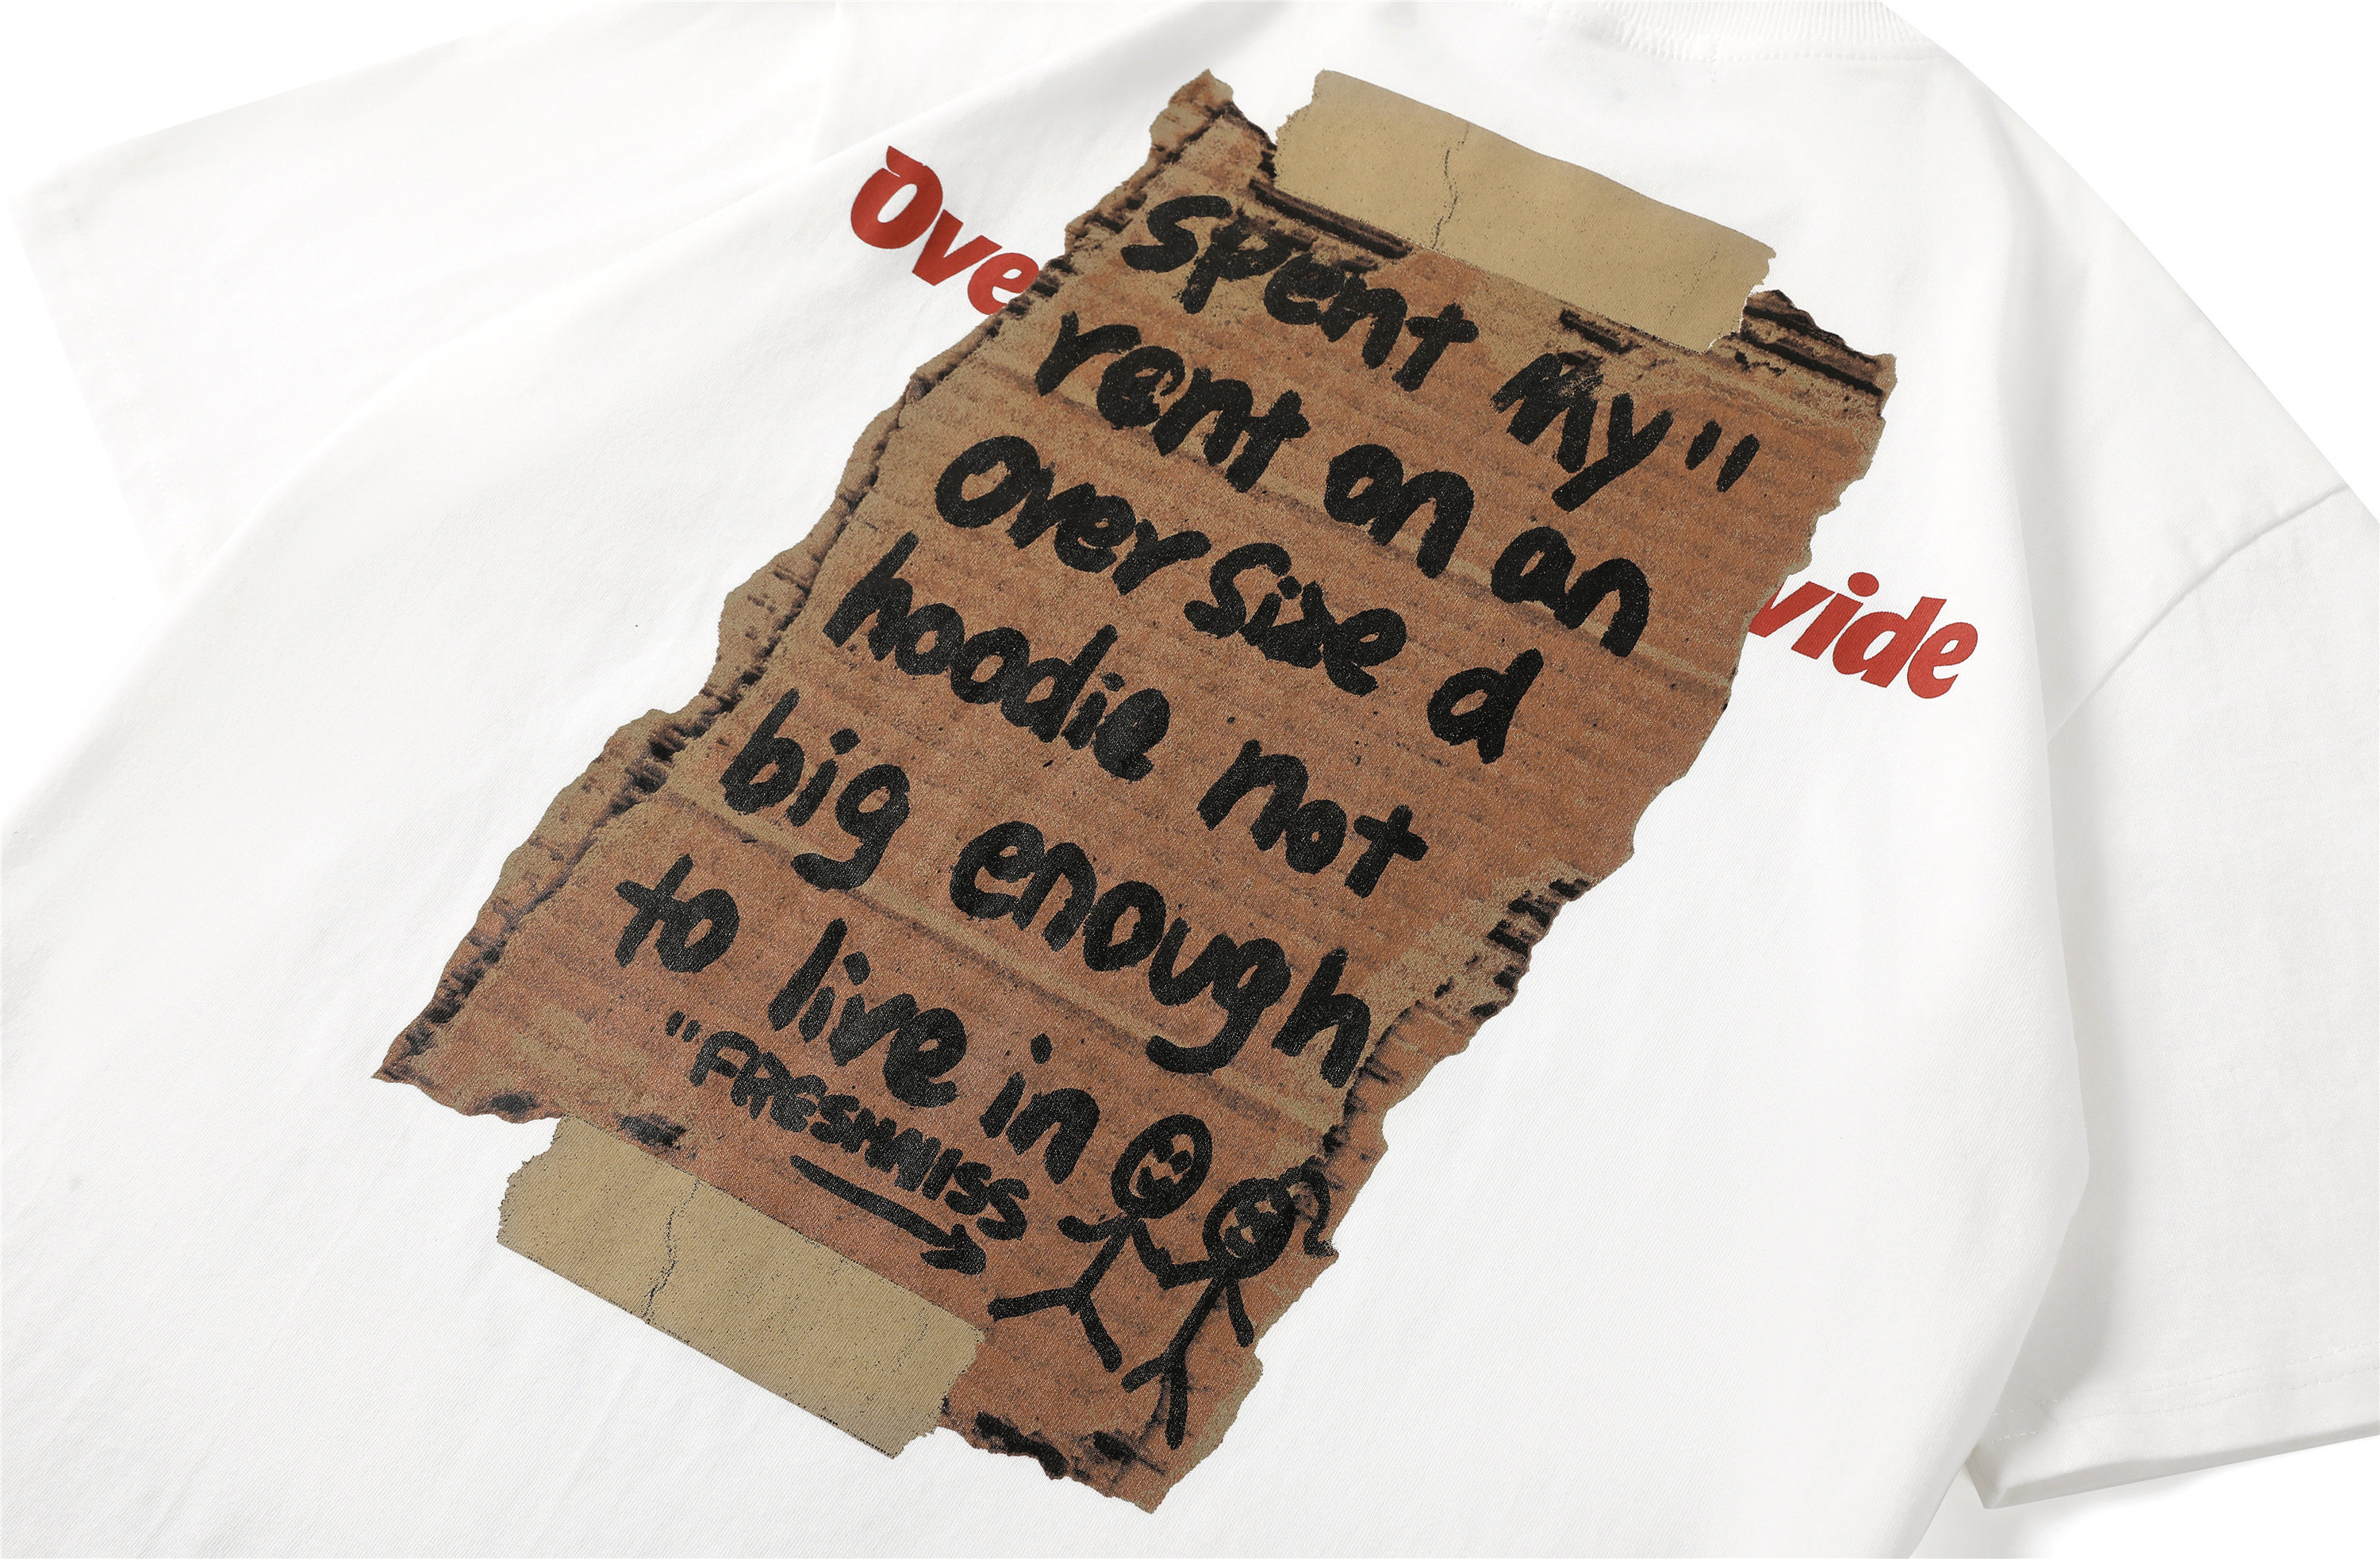 Ove
vide
Spent my"
rent on an
oversize d
hoodie not
big enough
to live in
"FRESHNISS